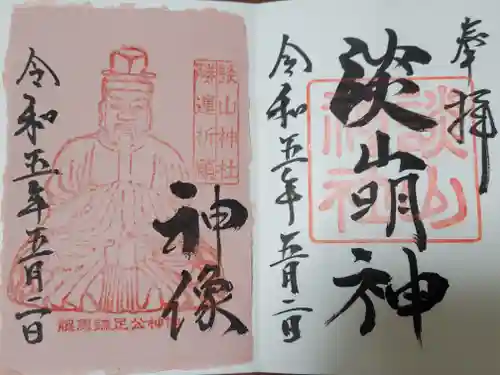 奉拝
談山明神
談山神社
令和五年五月二日
談山神社
勝運祈願
神像
令和五年五月二日